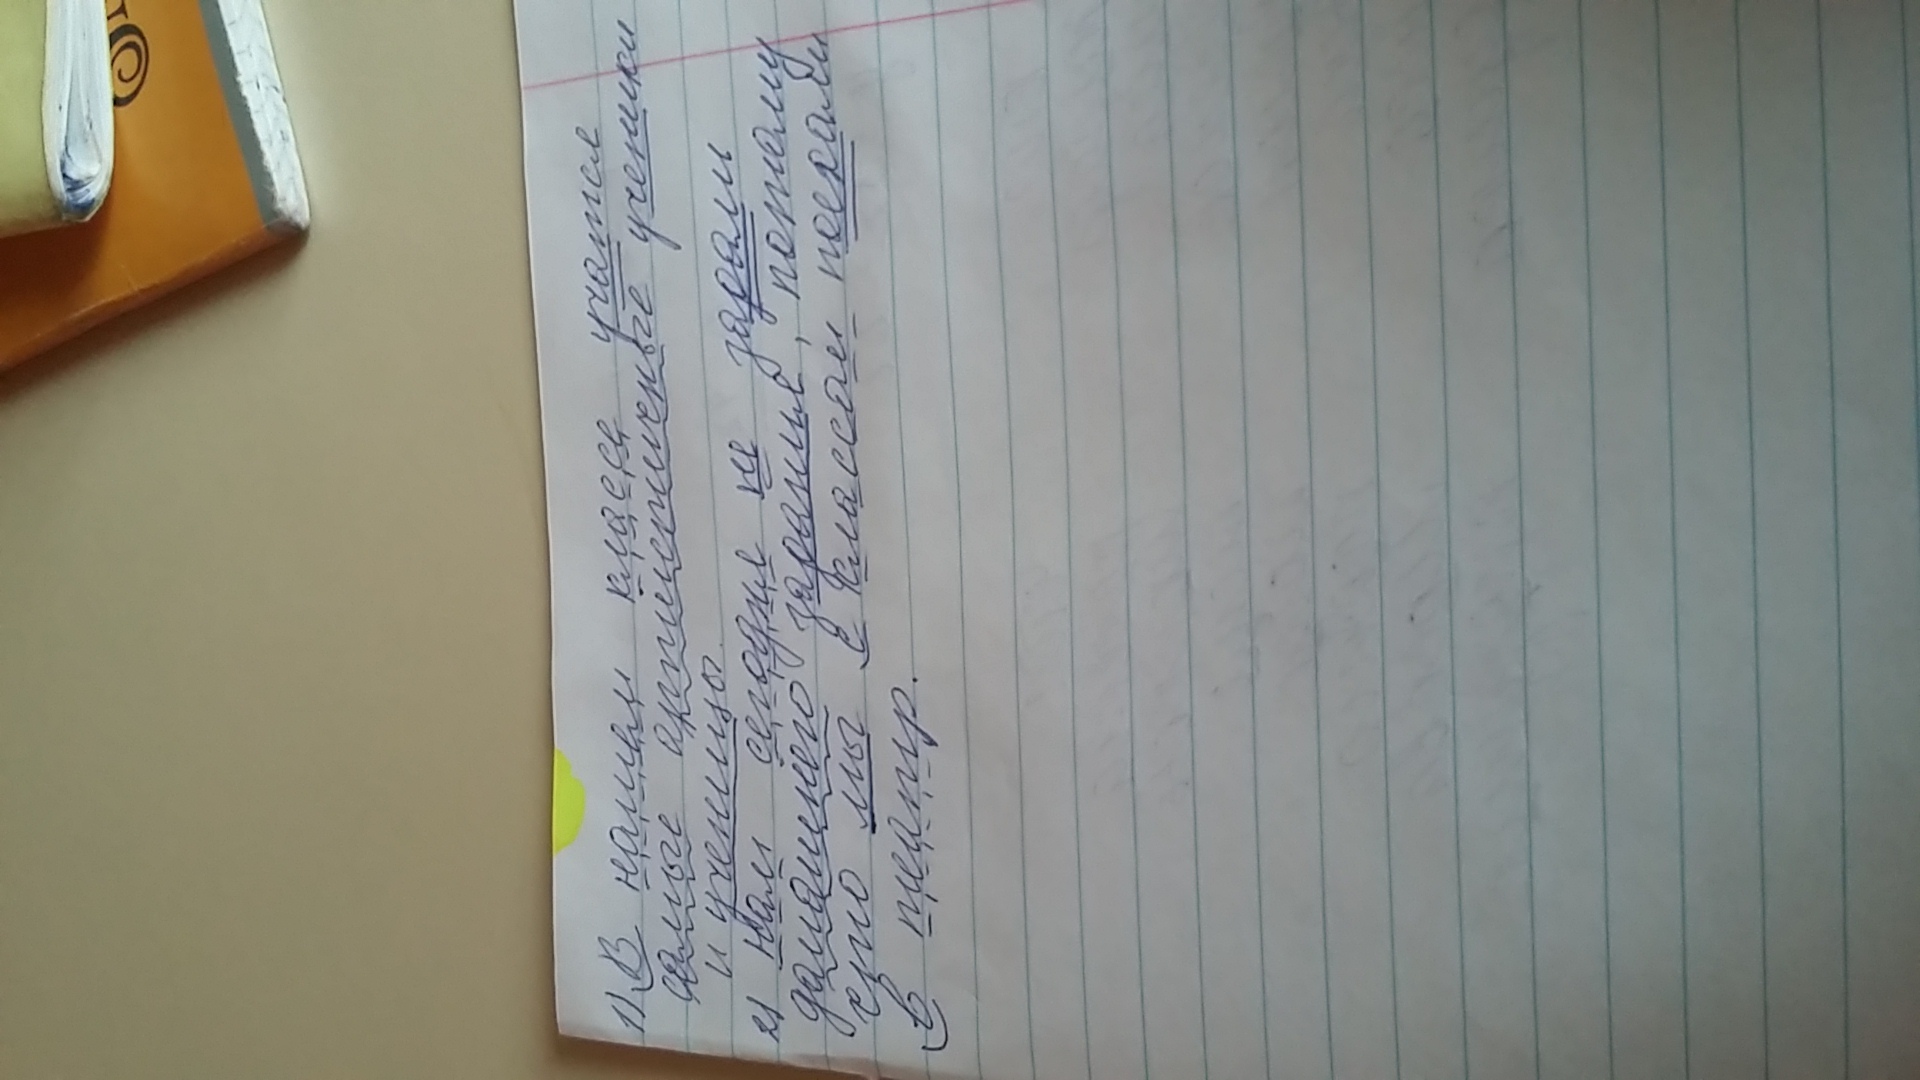 1) В нашем классе учатся
самые артистичные ученики
и ученицы.
2) Нам сегодня не задали
домашнего задания, потому
что мы с классом поехали
в театр.